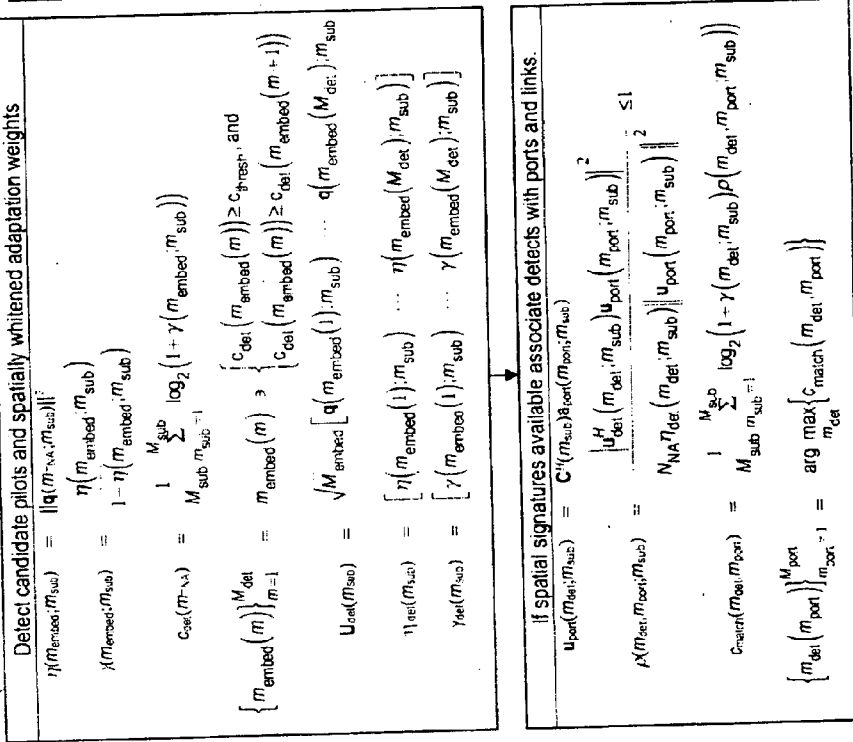 Detect candidate pilots and spatially whitened adaptation weights
η(m_embed; m_sub) = ||q(m_NA; m_sub)||²
γ(m_embed; m_sub) = η(m_embed; m_sub) / 1 − η(m_embed; m_sub)
c_det(m_NA) = 1 / M_sub ∑_{m_sub=1}^{M_sub} log₂(1 + γ(m_embed; m_sub))
{m_embed(m)}_{m=1}^{M_det} = m_embed(m) ∋ { c_det(m_embed(m)) ≥ c_thresh, and
c_det(m_embed(m)) ≥ c_det(m_embed(m + 1))
U_det(m_sub) = √M_embed [q(m_embed(1); m_sub) ... q(m_embed(M_det); m_sub
η_det(m_sub) = [η(m_embed(1); m_sub) ... η(m_embed(M_det); m_sub)]
γ_det(m_sub) = [γ(m_embed(1); m_sub) ... γ(m_embed(M_det); m_sub)]
If spatial signatures available associate detects with ports and links.
u_port(m_det; m_sub) = C^H(m_sub)a_port(m_port; m_sub)
ρ(m_det, m_port; m_sub) = |u_det^H(m_det; m_sub)u_port(m_port; m_sub)||² / N_NA η_det(m_det; m_sub)||u_port(m_port; m_sub)||² ≤ 1
c_match(m_det, m_port) = 1 / M_sub ∑_{m_sub=1}^{M_sub} log₂(1 + γ(m_det; m_sub)ρ(m_det, m_port; m_sub))
{m_det(m_port)}_{m_port=1}^{M_port} = arg max_{m_det}{c_match(m_det, m_port)}